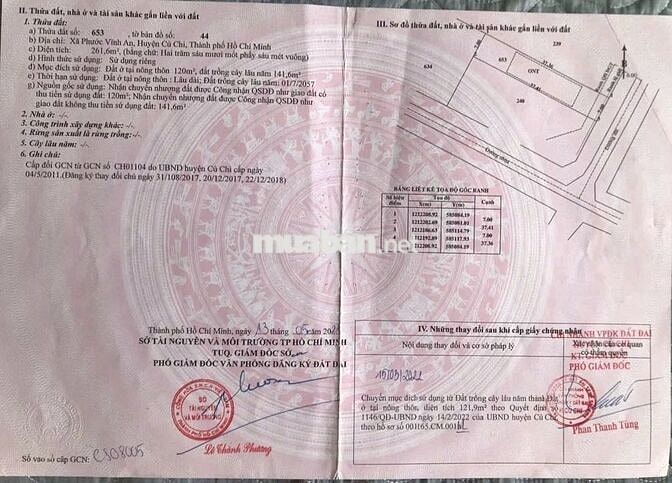 II. Thửa đất, nhà ở và tài sản khác gắn liền với đất
1. Thửa đất:
a) Thửa đất số: 653 , tờ bản đồ số: 44
b) Địa chỉ: Xã Phước Vĩnh An, Huyện Củ Chi, Thành phố Hồ Chí Minh
c) Diện tích: 261,6m², (bằng chữ: Hai trăm sáu mươi mốt phẩy sáu mét vuông)
d) Hình thức sử dụng: Sử dụng riêng
đ) Mục đích sử dụng: Đất ở tại nông thôn 120m², đất trồng cây lâu năm 141,6m²
e) Thời hạn sử dụng: Đất ở tại nông thôn : Lâu dài; Đất trồng cây lâu năm: 01/7/2057
g) Nguồn gốc sử dụng: Nhận chuyển nhượng đất được Công nhận QSDĐ như giao đất có
thu tiền sử dụng đất: 120m²; Nhận chuyển nhượng đất được Công nhận QSDĐ như
giao đất không thu tiền sử dụng đất: 141,6m²
2. Nhà ở: -/-
3. Công trình xây dựng khác: -/-
4. Rừng sản xuất là rừng trồng: -/-
5. Cây lâu năm: -/-
6. Ghi chú:
Cấp đổi GCN từ GCN số CH01104 do UBND huyện Củ Chi cấp ngày
04/5/2011.(Đăng ký thay đổi chủ ngày 31/108/2017, 20/12/2017, 22/12/2018)
Thành phố Hồ Chí Minh, ngày 13 tháng 05 năm
SỞ TÀI NGUYÊN VÀ MÔI TRƯỜNG TP HỒ CHÍ MINH
TUQ. GIÁM ĐỐC SỞ
PHÓ GIÁM ĐỐC VĂN PHÒNG ĐĂNG KÝ ĐẤT ĐAI
SỞ
TÀI NGUYÊN
VÀ MÔI TRƯỜNG
Lê Thành Phương
Số vào sổ cấp GCN: CS08005
III. Sơ đồ thửa đất, nhà ở và tài sản khác gắn liền với đất
239
634
653
37.36
ONT
37.41
240
7.00
Đường nhựa
BẢNG LIỆT KÊ TỌA ĐỘ GÓC RANH
Số hiệu điểm Tọa độ Cạnh
X(m) Y(m)
1 1212208.92 585084.19
7.00
2 1212202.69 585081.01
37.41
3 1212186.63 585114.79
7.00
4 1212192.89 585117.93
37.36
1 1212208.92 585084.19
muaban.net
IV. Những thay đổi sau khi cấp giấy chứng nhận
Nội dung thay đổi và cơ sở pháp lý
Xác nhận của cơ quan
có thẩm quyền
CHI NHÁNH VPĐK ĐẤT ĐAI
KT. GIÁM ĐỐC
PHÓ GIÁM ĐỐC
15/03/2022
Chuyển mục đích sử dụng từ Đất trồng cây lâu năm thành Đất
ở tại nông thôn, diện tích 121,9m² theo Quyết định số
1146/QĐ-UBND ngày 14/2/2022 của UBND huyện Củ Chi
theo hồ sơ số 001165.CM.001
Phan Thanh Tùng